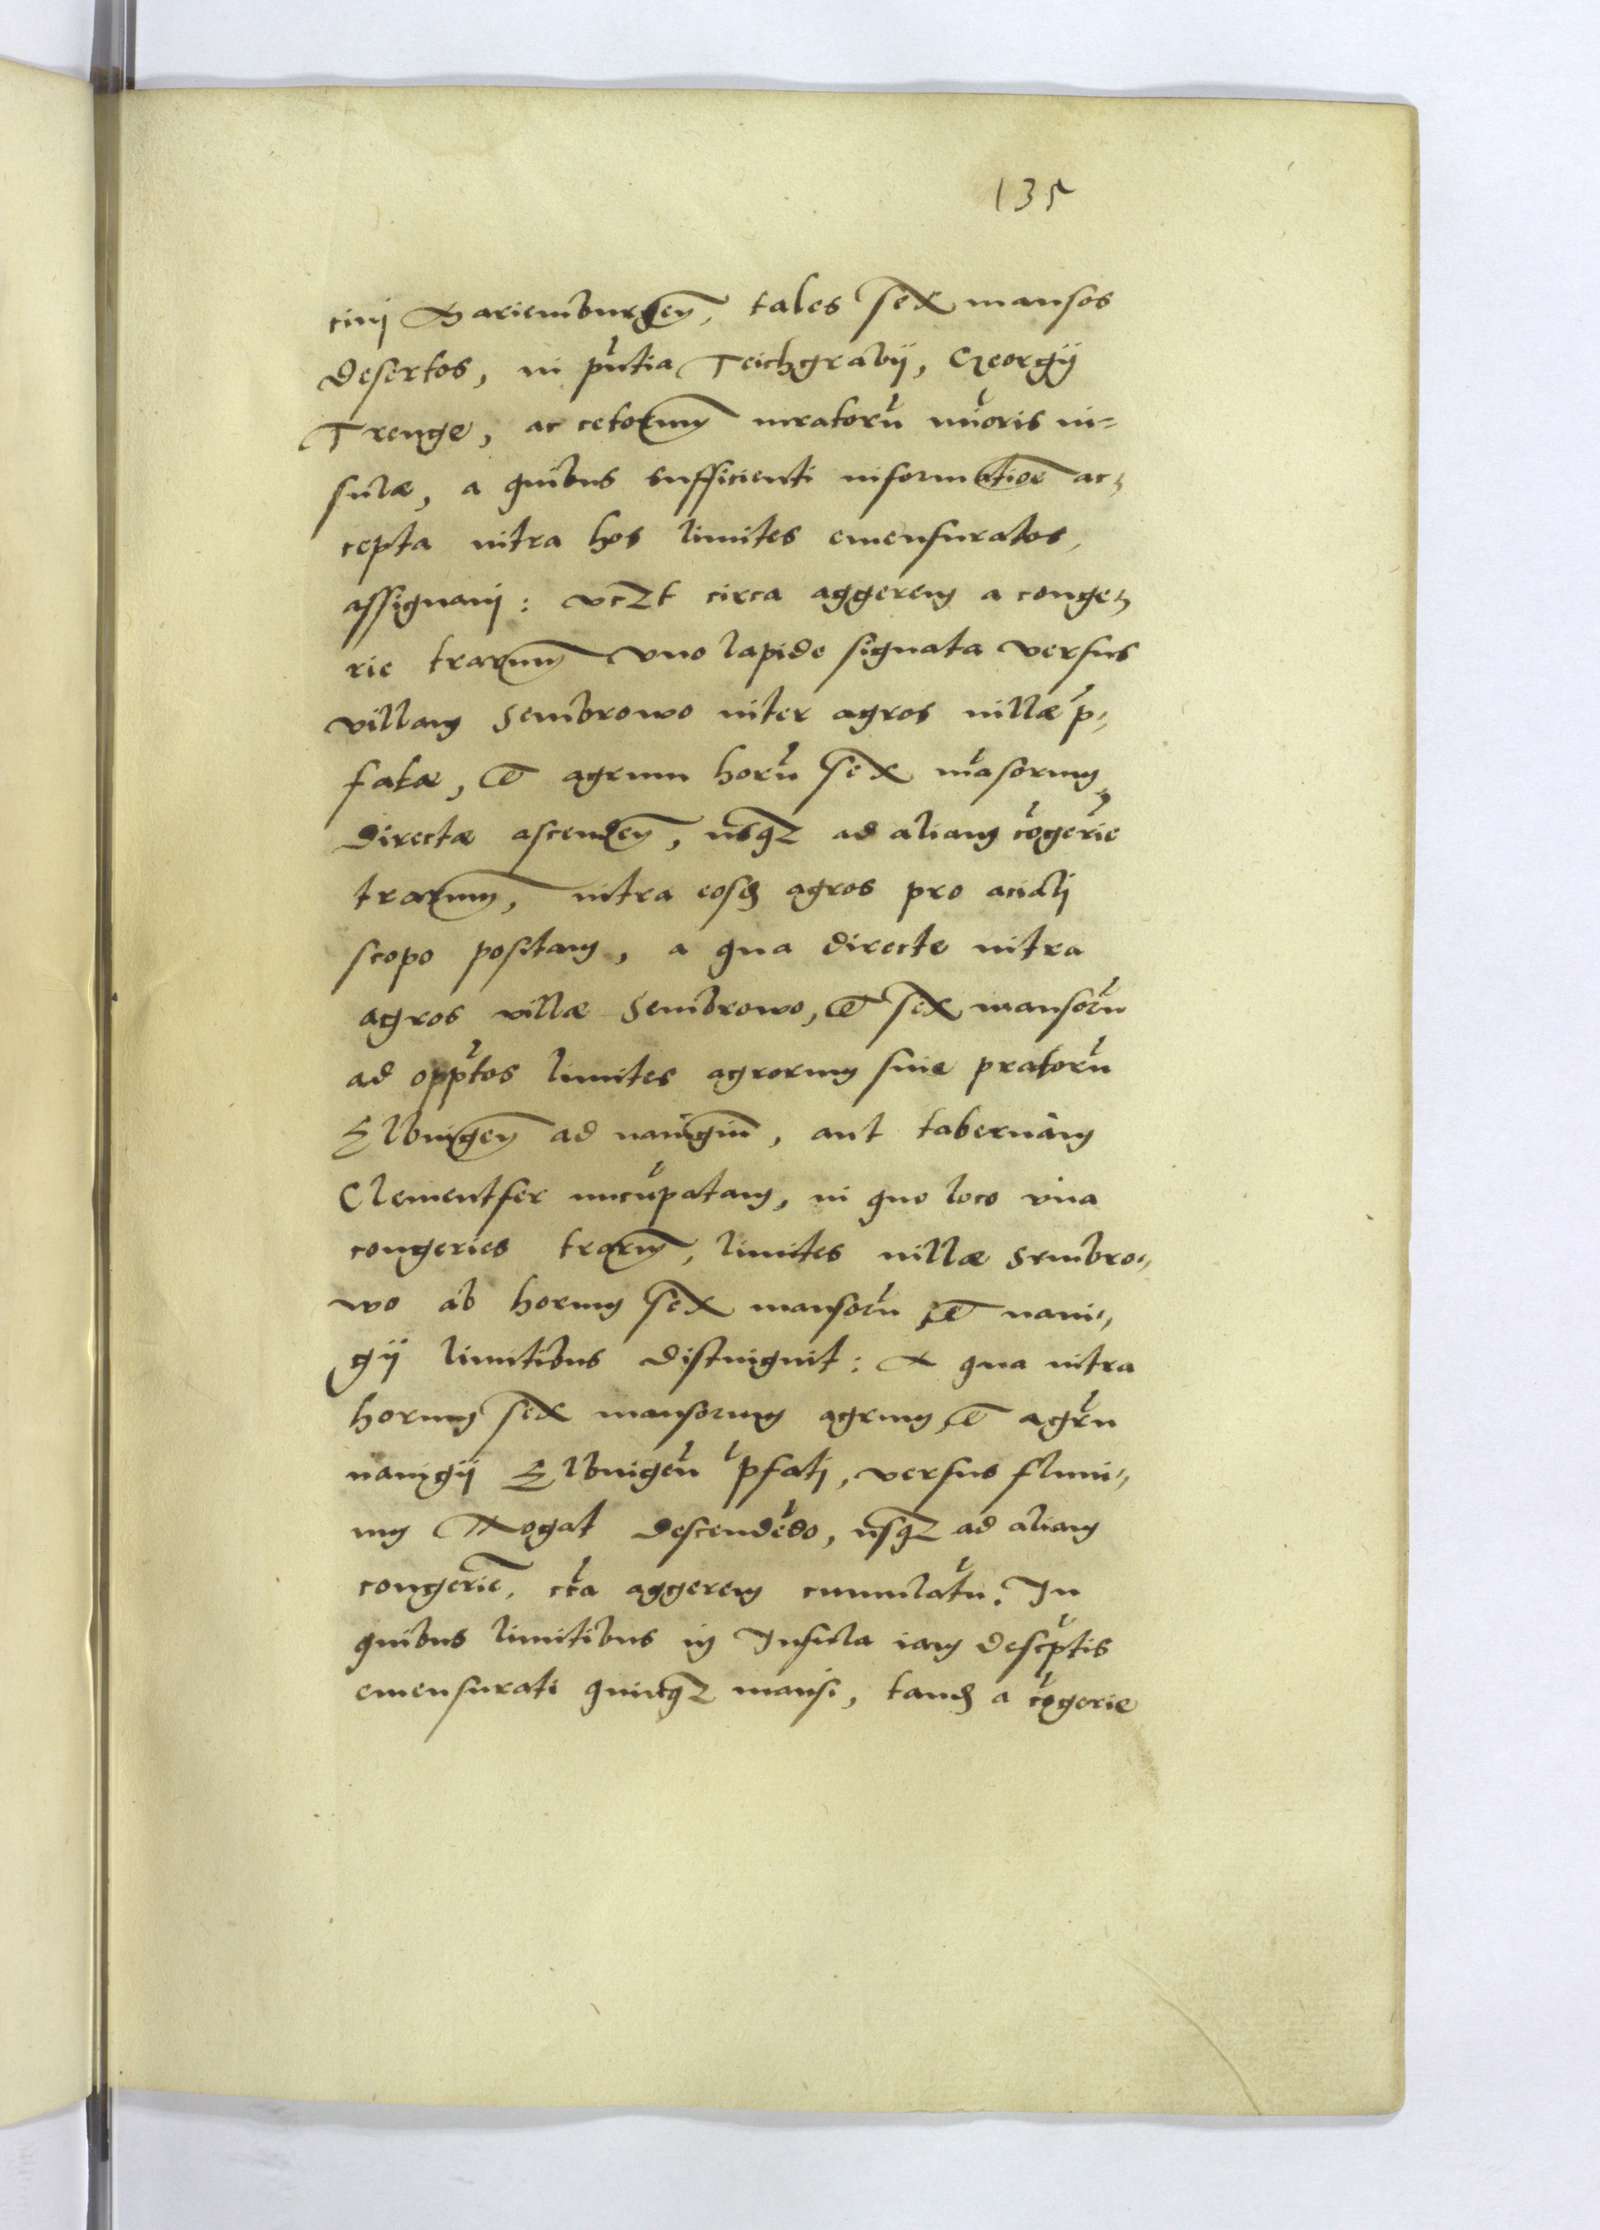 135
civi Mariemburgeñ, tales sex mansos
desertos, in pñtia Teichgrabii, Georgii
Trenge, ac cetorum iuratorũ mĩoris in=
sulæ, a quibus sufficienti informatiõe ac=
cepta intra hos limites emensuratos,
assignavi: vczt circa aggerem a conge=
rie trarum uno lapide signata versus
villam Sembrowo inter agros villæ p̃=
fatæ, et agrum horũ sex mãsorum
directæ ascendeñ, usqz ad aliam cõgeriẽ
trarum, intra eosd agros pro aciali
scopo positam, a qua directe intra
agros villæ Sembrowo, et sex mansorũ
ad opp̃tos limites agrorum sive pratorũ
Elbingeñ ad navigiũ, aut tabernam
Clementfer nũcupatam, in quo loco una
congeries trarum, limites villæ Sembro=
wo ab horum sex mansorũ et navi=
gii limitibus distinguit: A qua intra
horum sex mansorum agrum et agrũ
navigii Elbingeñ p̃fati, versus fluvi=
um Nogat descendẽdo, usqz ad aliam
congeriẽ, cc̃a aggerem cumulatũ. In
quibus limitibus in Insula iam descp̃tis
emensurati quinqz mansi, tand a cõgerie